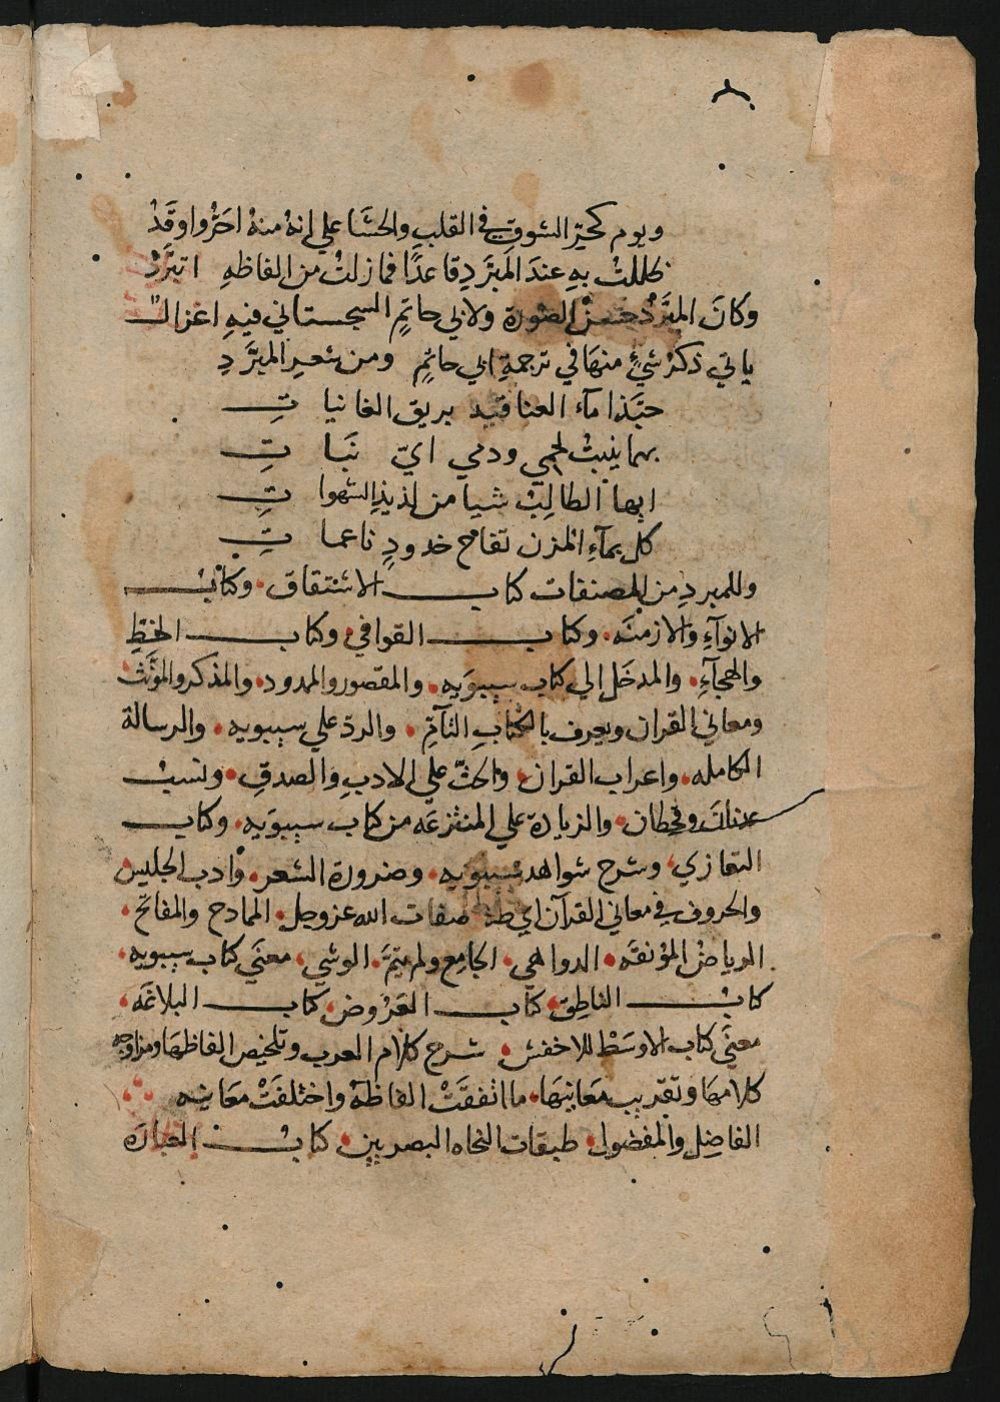 ويوم كحرّ الشوق في القلب والحشا على انهُ منهُ احَرُّ واوقَدُ
ظللتُ بهِ عندَ المبَرّدِ قاعدًا فما زلتُ من الفاظهِ اتبَرَّدُ
وكانَ المبَرَّدُ حسنَ الصورة ولابي حاتِمٍ السجستاني فيهِ اغزالٌ
ياتي ذكرُ شيءٍ منهَا في ترجمةِ ابي حاتمٍ ومن شعرِ المبرَّدِ
حبَّذا مآء العناقيد بريق الغانياتِ
بهما ينبتُ لحمي ودمي ايّ نبَاتِ
ايها الطالِبُ شيا من لذيذِ الشهواتِ
كل بمآءِ المزن تفاح خدودٍ ناعماتِ
وللمبردِ من المصنفات كتاب الاشتقاق وكتابُ
الانوآءِ والازمنَه وكتاب القوافي وكتاب الخطِّ
والهجآءِ والمدخَل الى كتاب سيبوَيه والمقصور والممدود والمذكر والمؤنَّث
ومعاني القران ويعرف بالكتابِ التآمّ والردّ على سيبويه والرسالة
الكامله واعراب القران والحثّ على الادبِ والصدقِ ونسبُ
عدنان وقحطان والزيادة على المنتزعَه من كتاب سيبوَيه وكتاب
التعازي وشرح شواهد سيبويه وضرورة الشعر وادب الجليس
والحروف في معاني القرآن الى طه صفات الله عزوجل الممادح والمقابح
الرياضُ المؤنقَه الدواهي الجامِع ولم يتمَّ الوشي معنَى كتاب سيبويه
كتابُ الناطِق كتاب العَرُوض كتاب البلاغَه
معنَى كتاب الاوسَط للاخفش شرح كلام العرب وتلخيص الفاظهَا ومزاوجه
كلامهَا وتقريب معَانيهَا ما اتفقَتْ الفاظهُ واختلفَتْ معَانيه
الفاضِل والمفضول طبقات النحاه البصريين كتابُ العبارَه